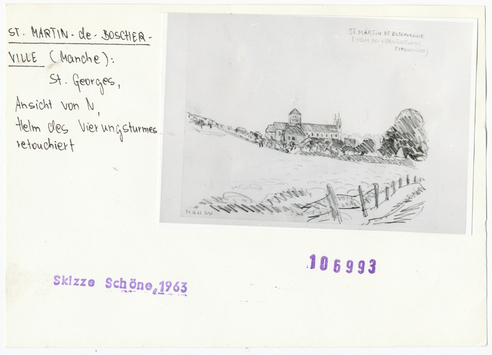 ST. MARTIN-de-BOSCHER-
VILLE (Manche):
St. Georges,
Ansicht von N,
Helm des Vierungsturmes
retouchiert
ST. MARTIN DE BOSCHERVILLE
Skizze Schöne, 1963
106993